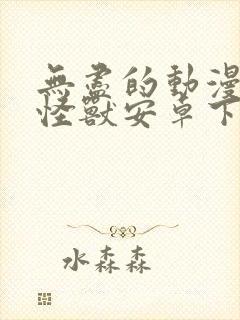 無盡的動漫
怪獸安卓下
水森森